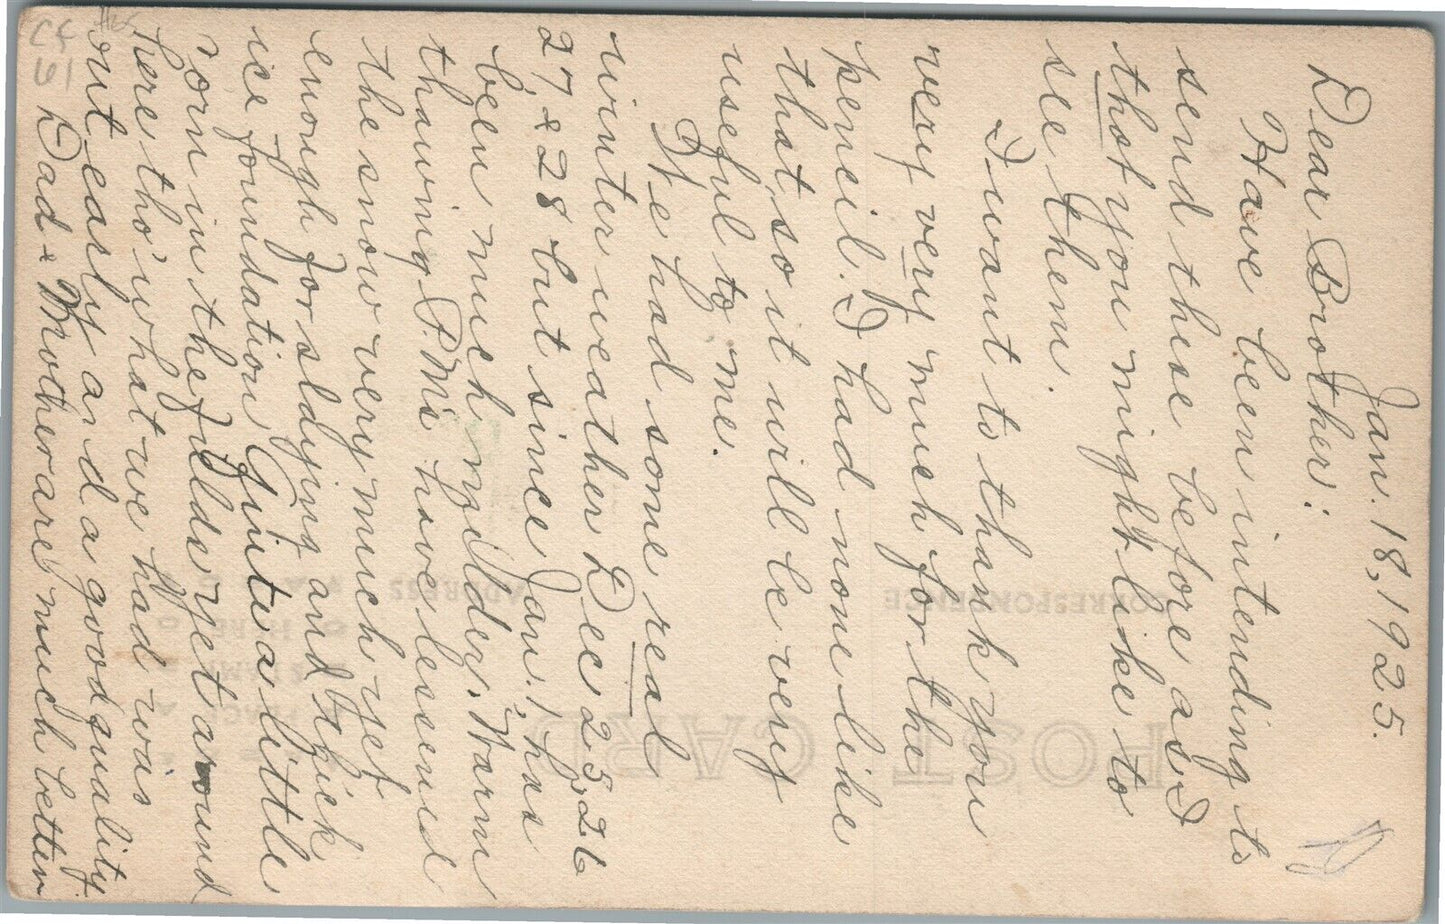 Jan. 18, 1925.
Dear Brother:
Have been intending to
send these before as I
thot you might like to
see them.
I want to thank you
very very much for the
pencil. I had none like
that so it will be very
useful to me.
We had some real
winter weather Dec 25, 26
27, & 28 but since Jan. 1 has
been much milder. Warm
thawing P.M's have lessened
the snow very much yet
enough for sleddying and thick
ice foundation. Quite a little
corn in the fields yet around
here tho' what we had was
out early and a good quality.
Dad & Mother are much better
POST CARD
CORRESPONDENCE
ADDRESS
PLACE
STAMP
HERE